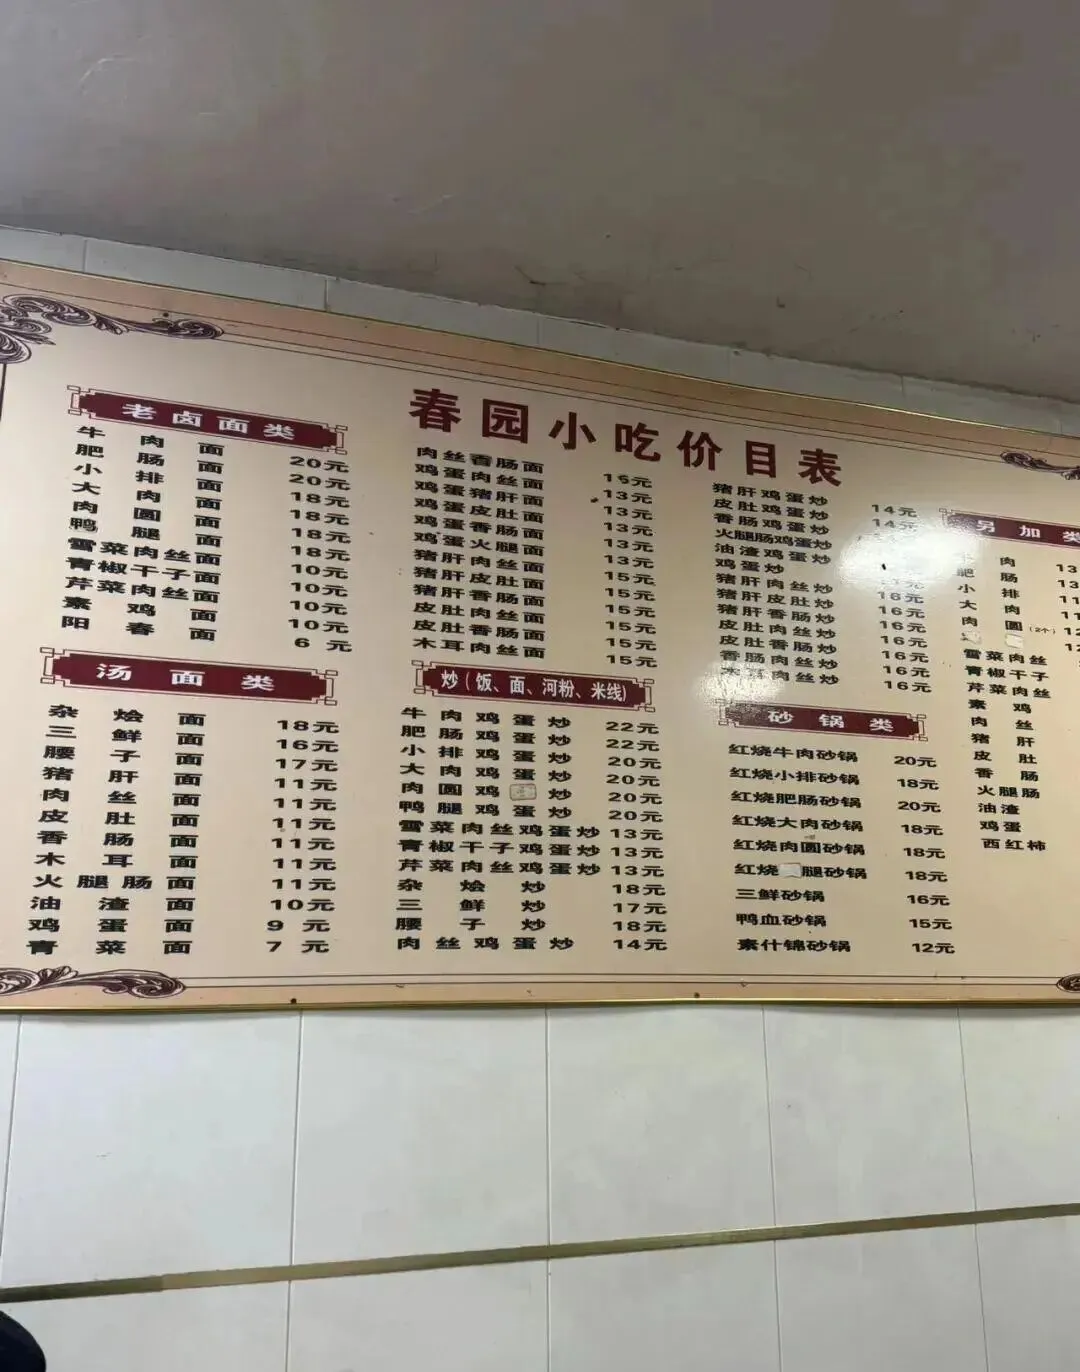 春园小吃价目表
老卤面类
牛肉面 20元
肥肠面 20元
小排面 18元
大肉面 18元
肉圆面 18元
鸭腿面 18元
雪菜肉丝面 10元
青椒干子面 10元
芹菜肉丝面 10元
素鸡面 10元
阳春面 6元
汤面类
杂烩面 18元
三鲜面 16元
腰子面 17元
猪肝面 11元
肉丝面 11元
皮肚面 11元
香肠面 11元
木耳面 11元
火腿肠面 11元
油渣面 10元
鸡蛋面 9元
青菜面 7元
肉丝香肠面 15元
鸡蛋肉丝面 13元
鸡蛋猪肝面 13元
鸡蛋皮肚面 13元
鸡蛋香肠面 13元
鸡蛋火腿面 13元
猪肝肉丝面 15元
猪肝皮肚面 15元
猪肝香肠面 15元
皮肚肉丝面 15元
皮肚香肠面 15元
木耳肉丝面 15元
炒(饭、面、河粉、米线)
牛肉鸡蛋炒 22元
肥肠鸡蛋炒 22元
小排鸡蛋炒 20元
大肉鸡蛋炒 20元
肉圆鸡炒 20元
鸭腿鸡蛋炒 20元
雪菜肉丝鸡蛋炒 13元
青椒干子鸡蛋炒 13元
芹菜肉丝鸡蛋炒 13元
杂烩炒 18元
三鲜炒 17元
腰子炒 18元
肉丝鸡蛋炒 14元
猪肝鸡蛋炒 14元
皮肚鸡蛋炒 14元
香肠鸡蛋炒
火腿肠鸡蛋炒
油渣鸡蛋炒
鸡蛋炒
猪肝肉丝炒 16元
猪肝皮肚炒 16元
猪肝香肠炒 16元
皮肚肉丝炒 16元
皮肚香肠炒 16元
香肠肉丝炒 16元
木耳肉丝炒 16元
砂锅类
红烧牛肉砂锅 20元
红烧小排砂锅 18元
红烧肥肠砂锅 20元
红烧大肉砂锅 18元
红烧肉圆砂锅 18元
红烧腿砂锅 18元
三鲜砂锅 16元
鸭血砂锅 15元
素什锦砂锅 12元
另加类
牛肉 13
肥肠 13
小排 11
大肉 11
肉圆(2个) 12
12
雪菜肉丝
青椒干子
芹菜肉丝
素鸡
肉丝
猪肝
皮肚
香肠
火腿肠
油渣
鸡蛋
西红柿